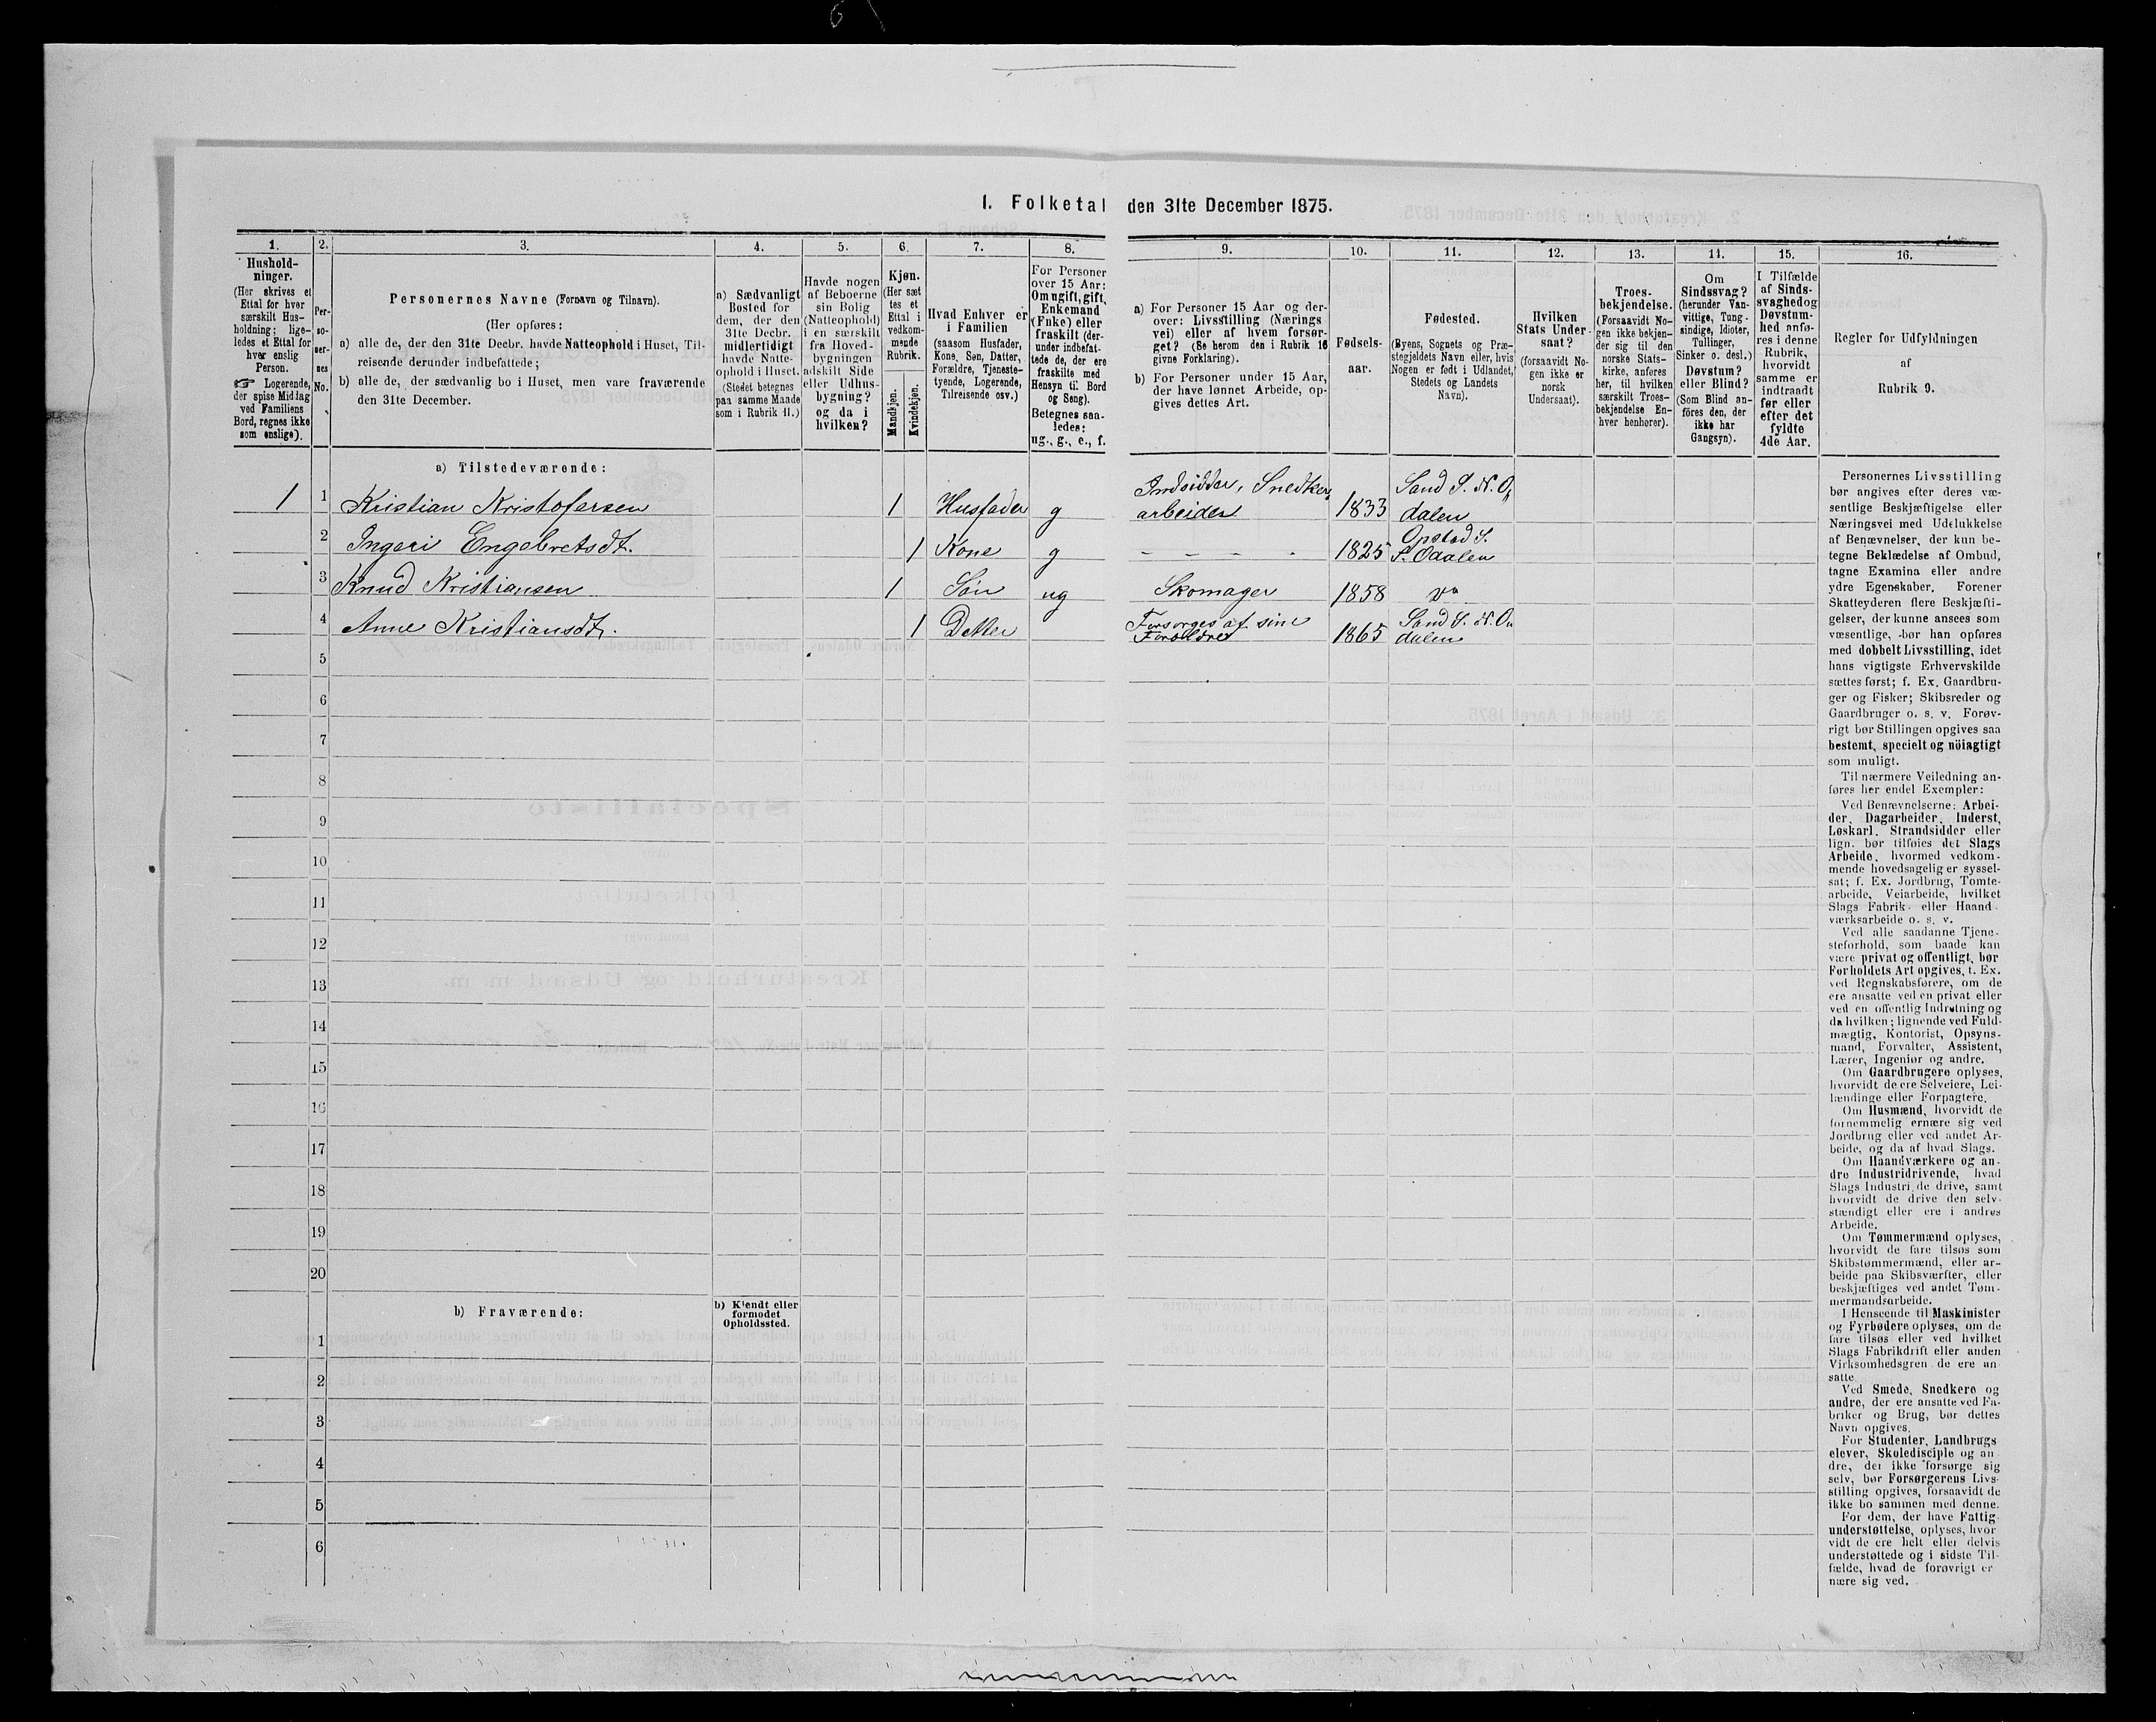 1. Folketal den 31te December 1875.
1.
2.
3.
4.
5.
6.
7.
8.
9.
10.
11.
12.
13.
14.
15.
16.
Hushold-
ninger.
(Her skrives et
Ettal for hver
særskilt Hus-
holdning; lige-
ledes et Ettal for
hver enslig
Person.
☞ Logerende,
der spise Middag
ved Familiens
Bord, regnes ikke
som enslige).
Per-
so-
ner-
nes
No.
Personernes Navne (Fornavn og Tilnavn).
(Her opføres:
a) alle de, der den 31te Decbr. havde Natteophold i Huset, Til-
reisende derunder indbefattede;
b) alle de, der sædvanlig bo i Huset, men vare fraværende
den 31te December.
a) Sædvanligt
Bosted for
dem, der den
31te Decbr.
midlertidigt
havde Natte-
ophold i Huset.
(Stedet betegnes
paa samme Maade
som i Rubrik 11.)
Havde nogen
af Beboerne
sin Bolig
(Natteophold)
i en særskilt
fra Hoved-
bygningen
adskilt Side
eller Udhus-
bygning?
og da i
hvilken?
Kjøn.
(Her sæt
tes et
Ettal i
vedkom-
mende
Rubrik.
Mandkjøn.
Kvindekjøn.
Hvad Enhver er
i Familien
(saasom Husfader,
Kone, Søn, Datter,
Forældre, Tjeneste-
tyende, Logerende,
Tilreisende osv.)
For Personer
over 15 Aar:
Om ugift, gift,
Enkemand
(Enke) eller
fraskilt (der-
under indbefat-
tede de, der ere
fraskilte med
Hensyn til Bord
og Seng).
Betegnes saa-
ledes:
ug., g., e., f.
a) For Personer 15 Aar og der-
over: Livsstilling (Nærings
vei) eller af hvem forsør-
get? (Se herom den i Rubrik 16
givne Forklaring).
b) For Personer under 15 Aar,
der have lønnet Arbeide, op-
gives dettes Art.
Fødsels-
aar.
Fødested.
(Byens, Sognets og Præ-
stegjeldets Navn eller, hvis
Nogen er født i Udlandet,
Stedets og Landets
Navn).
Hvilken
Stats Under-
saat?
(forsaavidt No-
gen ikke er
norsk
Undersaat).
Troes-
bekjendelse.
(Forsaavidt No-
gen ikke bekjen-
der sig til den
norske Stats-
kirke, anføres
her, til hvilken
særskilt Troes-
bekjendelse En-
hver henhører).
Om
Sindssvag?
(herunder Van-
vittige, Tung-
sindige, Idioter,
Tullinger,
Sinker o. desl.)
Døvstum?
eller Blind?
(Som Blind an-
föres den, der
ikke har
Gangsyn).
I Tilfælde
af Sinds-
svaghed og
Døvstum-
hed anfø-
res i denne
Rubrik,
hvorvidt
samme er
indtraadt
før eller
efter det
fyldte
4de Aar.
Regler for Udfyldningen
af
Rubrik 9.
a) Tilstedeværende:
1 1 Kristian Kristofersen 1 Husfader g Indsidder, Snedker
arbeider 1833 Sand S. N. O
dalen
2 Ingeri Engebretsdt. 1 Kone g - - - - 1825 Opstad S.
S. Odalen
3 Knud Kristiansen 1 Søn ug Skomager 1858 do
4 Anne Kristiansdt. 1 Datter Forsørges af sine
Forældre 1865 Sand S. N. O
dalen
5
6
7
8
9
10
11
12
13
14
15
16
17
18
19
20
b) Fraværende:
b) Kjendt eller
formodet
Opholdssted.
1
2
3
4
5
6
Personernes Livsstilling
bør angives efter deres væ-
sentlige Beskjæftigelse eller
Næringsvei med Udelukkelse
af Benævnelser, der kun be-
tegne Beklædelse af Ombud,
tagne Examina eller andre
ydre Egenskaber. Forener
Skatteyderen flere Beskjæfti-
gelser, der kunne ansees som
væsentlige, bør han opføres
med dobbelt Livsstilling, idet
hans vigtigste Erhvervskilde
sættes først; f. Ex. Gaardbru-
ger og Fisker; Skibsreder og
Gaardbruger o. s. v. Forøv-
rigt bør Stillingen opgives saa
bestemt, specielt og nöiagtigt
som muligt.
Til nærmere Veiledning an-
føres her endel Exempler:
Ved Benævnelserne: Arbei-
der, Dagarbeider, Inderst,
Løskarl, Strandsidder eller
lign. bør tilføies det Slags
Arbeide, hvormed vedkom-
mende hovedsagelig er syssel-
sat; f. Ex. Jordbrug, Tomte-
arbeide, Veiarbeide, hvilket
Slags Fabrik- eller Haand-
værksarbeide o. s. v.
Ved alle saadanne Tjene-
steforhold, som baade kan
være privat og offentligt, bør
Forholdets Art opgives, t. Ex.
ved Regnskabsførere, om de
ere ansatte ved en privat eller
ved en offentlig Indretning og
da hvilken; lignende ved Fuld-
mægtig, Kontorist, Opsyns-
mand, Forvalter, Assistent,
Lærer, Ingeniør og andre.
Om Gaardbrugere oplyses,
hvorvidt de ere Selveiere, Lei-
lændinge eller Forpagtere.
Om Husmænd, hvorvidt de
fornemmelig ernære sig ved
Jordbrug eller ved andet Ar-
beide, og da af hvad Slags.
Om Haandværkere og an-
dre Industridrivende, hvad
Slags Industri de drive, samt
hvorvidt de drive den selv-
stændigt eller ere i andres
Arbeide.
Om Tømmermænd oplyses,
hvorvidt de fare tilsøs som
Skibstømmermænd, eller ar-
beide paa Skibsværfter, eller
beskjæftiges ved andet Tøm-
mermandsarbeide.
I Henseende til Maskinister
og Fyrbødere oplyses, om de
fare tilsøs eller ved hvilket
Slags Fabrikdrift eller anden
Virksomhedsgren de ere an-
satte.
Ved Smede, Snedkere og
andre, der ere ansatte ved Fa-
briker og Brug, bør dettes
Navn opgives.
For Studenter, Landbrugs-
elever, Skoledisciple og an-
dre, der ikke forsørge sig
selv, bør Forsørgerens Livs-
stilling opgives, forsaavidt de
ikke bo sammen med denne.
For dem, der have Fattig-
understøttelse, oplyses, hvor
vidt de ere helt eller delvis
understøttede og i sidste Til-
fælde, hvad de forøvrigt er
nære sig ved.